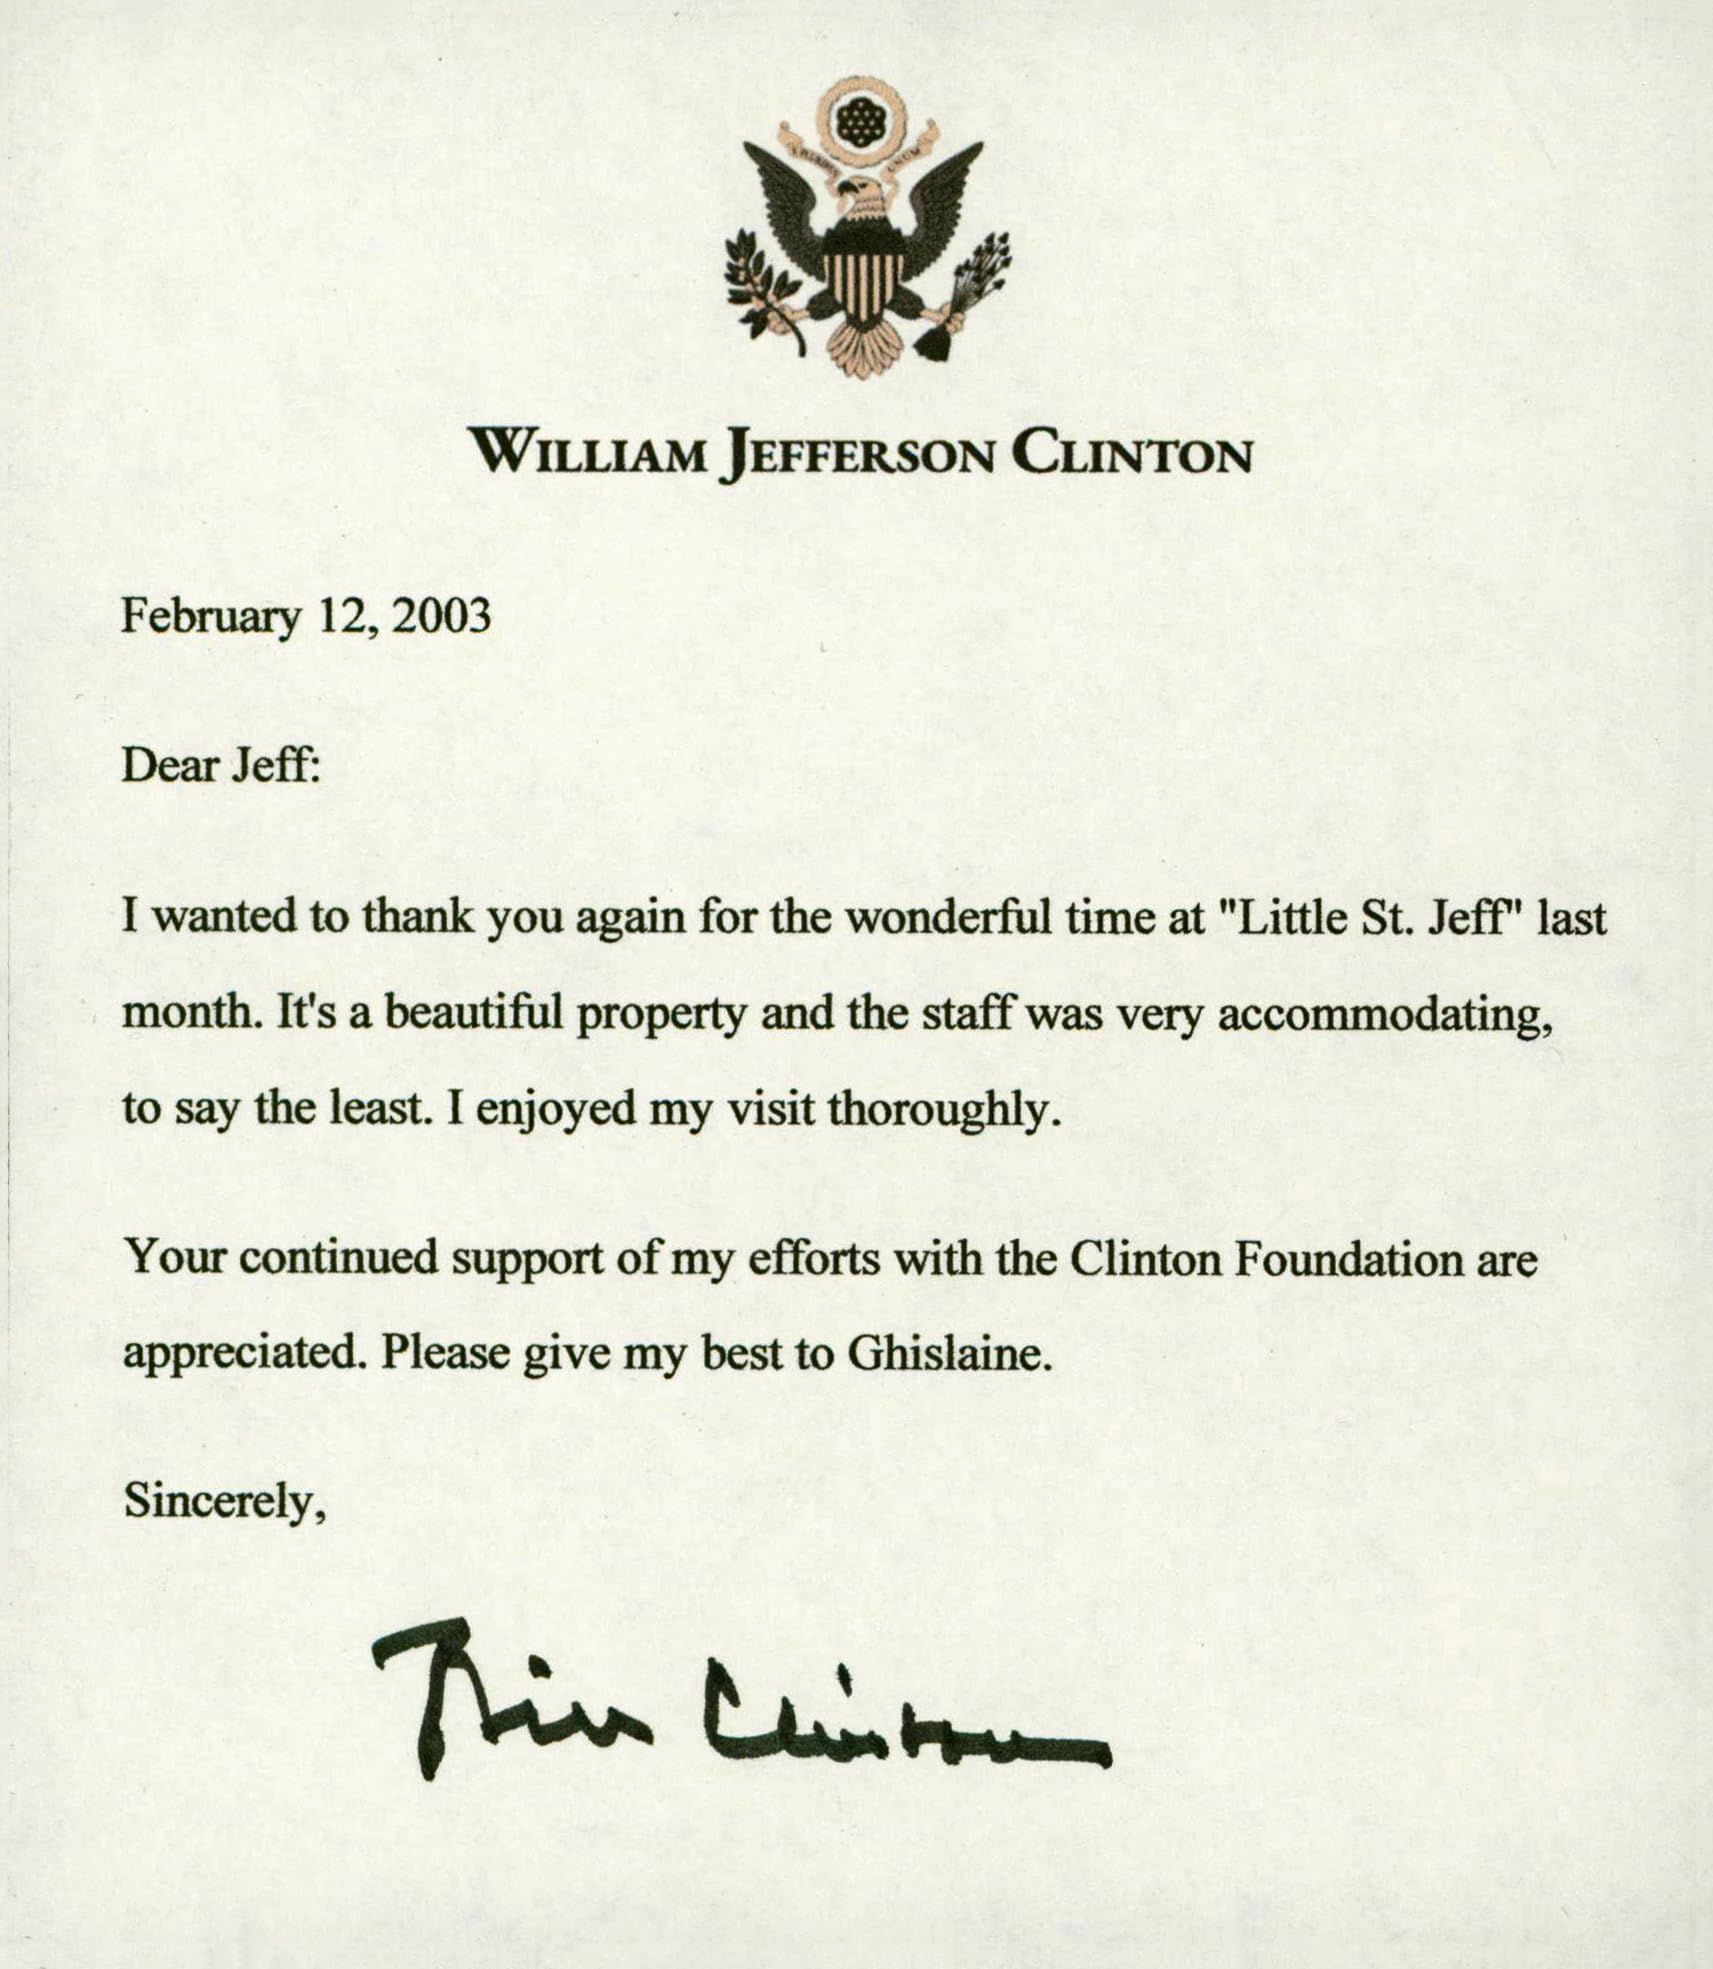 WILLIAM JEFFERSON CLINTON
February 12, 2003
Dear Jeff:
I wanted to thank you again for the wonderful time at "Little St. Jeff" last
month. It's a beautiful property and the staff was very accommodating,
to say the least. I enjoyed my visit thoroughly.
Your continued support of my efforts with the Clinton Foundation are
appreciated. Please give my best to Ghislaine.
Sincerely,
Bill Clinton